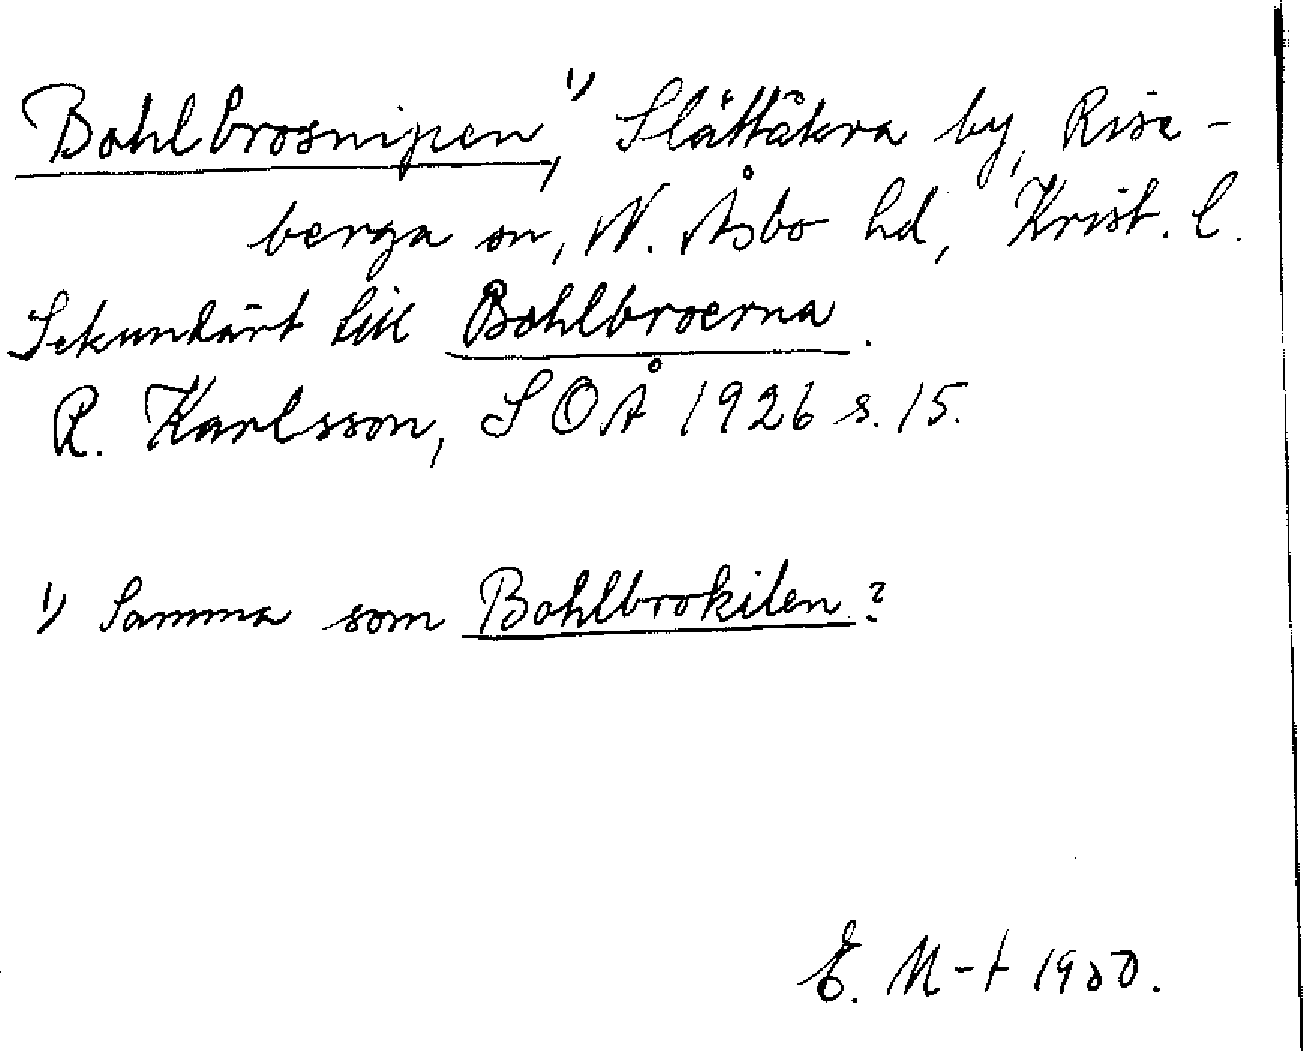 Bohlbrosnipen,¹⁾ Slättåkra by, Rise-
berga sn, N. Åsbo hd, Krist. l.
Sekundärt till Bohlbroerna.
R. Karlsson, SOÅ 1926 s. 15.
¹⁾ Samma som Bohlbrokilen?
E. M-t 1950.